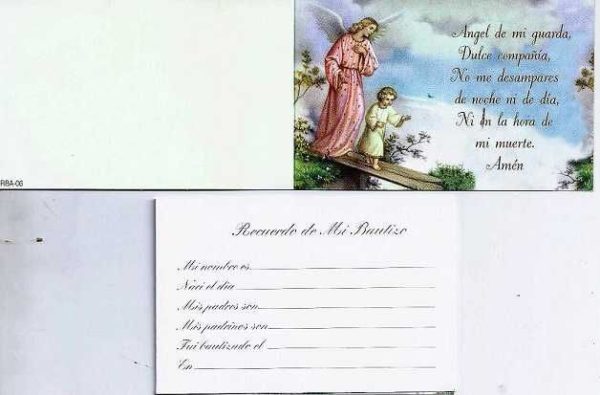 Angel de mi guarda,
Dulce compañía,
No me desampares
de noche ni de día,
Ni en la hora de
mi muerte.
Amén
RBA-06
Recuerdo de Mi Bautizo
Mi nombre es
Nací el día
Mis padres son
Mis padrinos son
Fui bautizado el
En